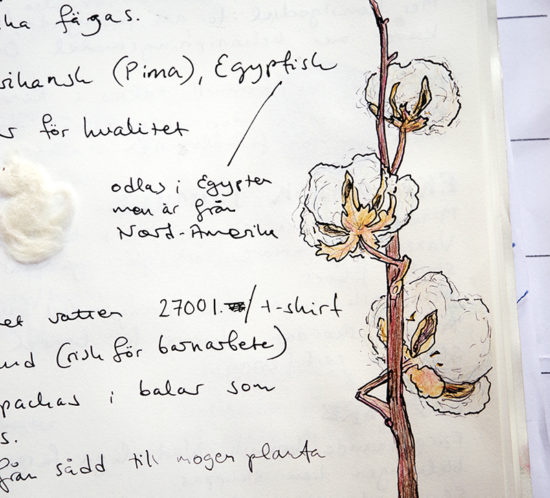 ka fägas.
rikansk (Pima), Egyptisk
s för kvalitet
odlas i Egypten
men är från
Nord-Amerika
et vatten 2700l. /t-shirt
und (risk för barnarbete)
packas i balar som
s.
från sådd till mogen planta